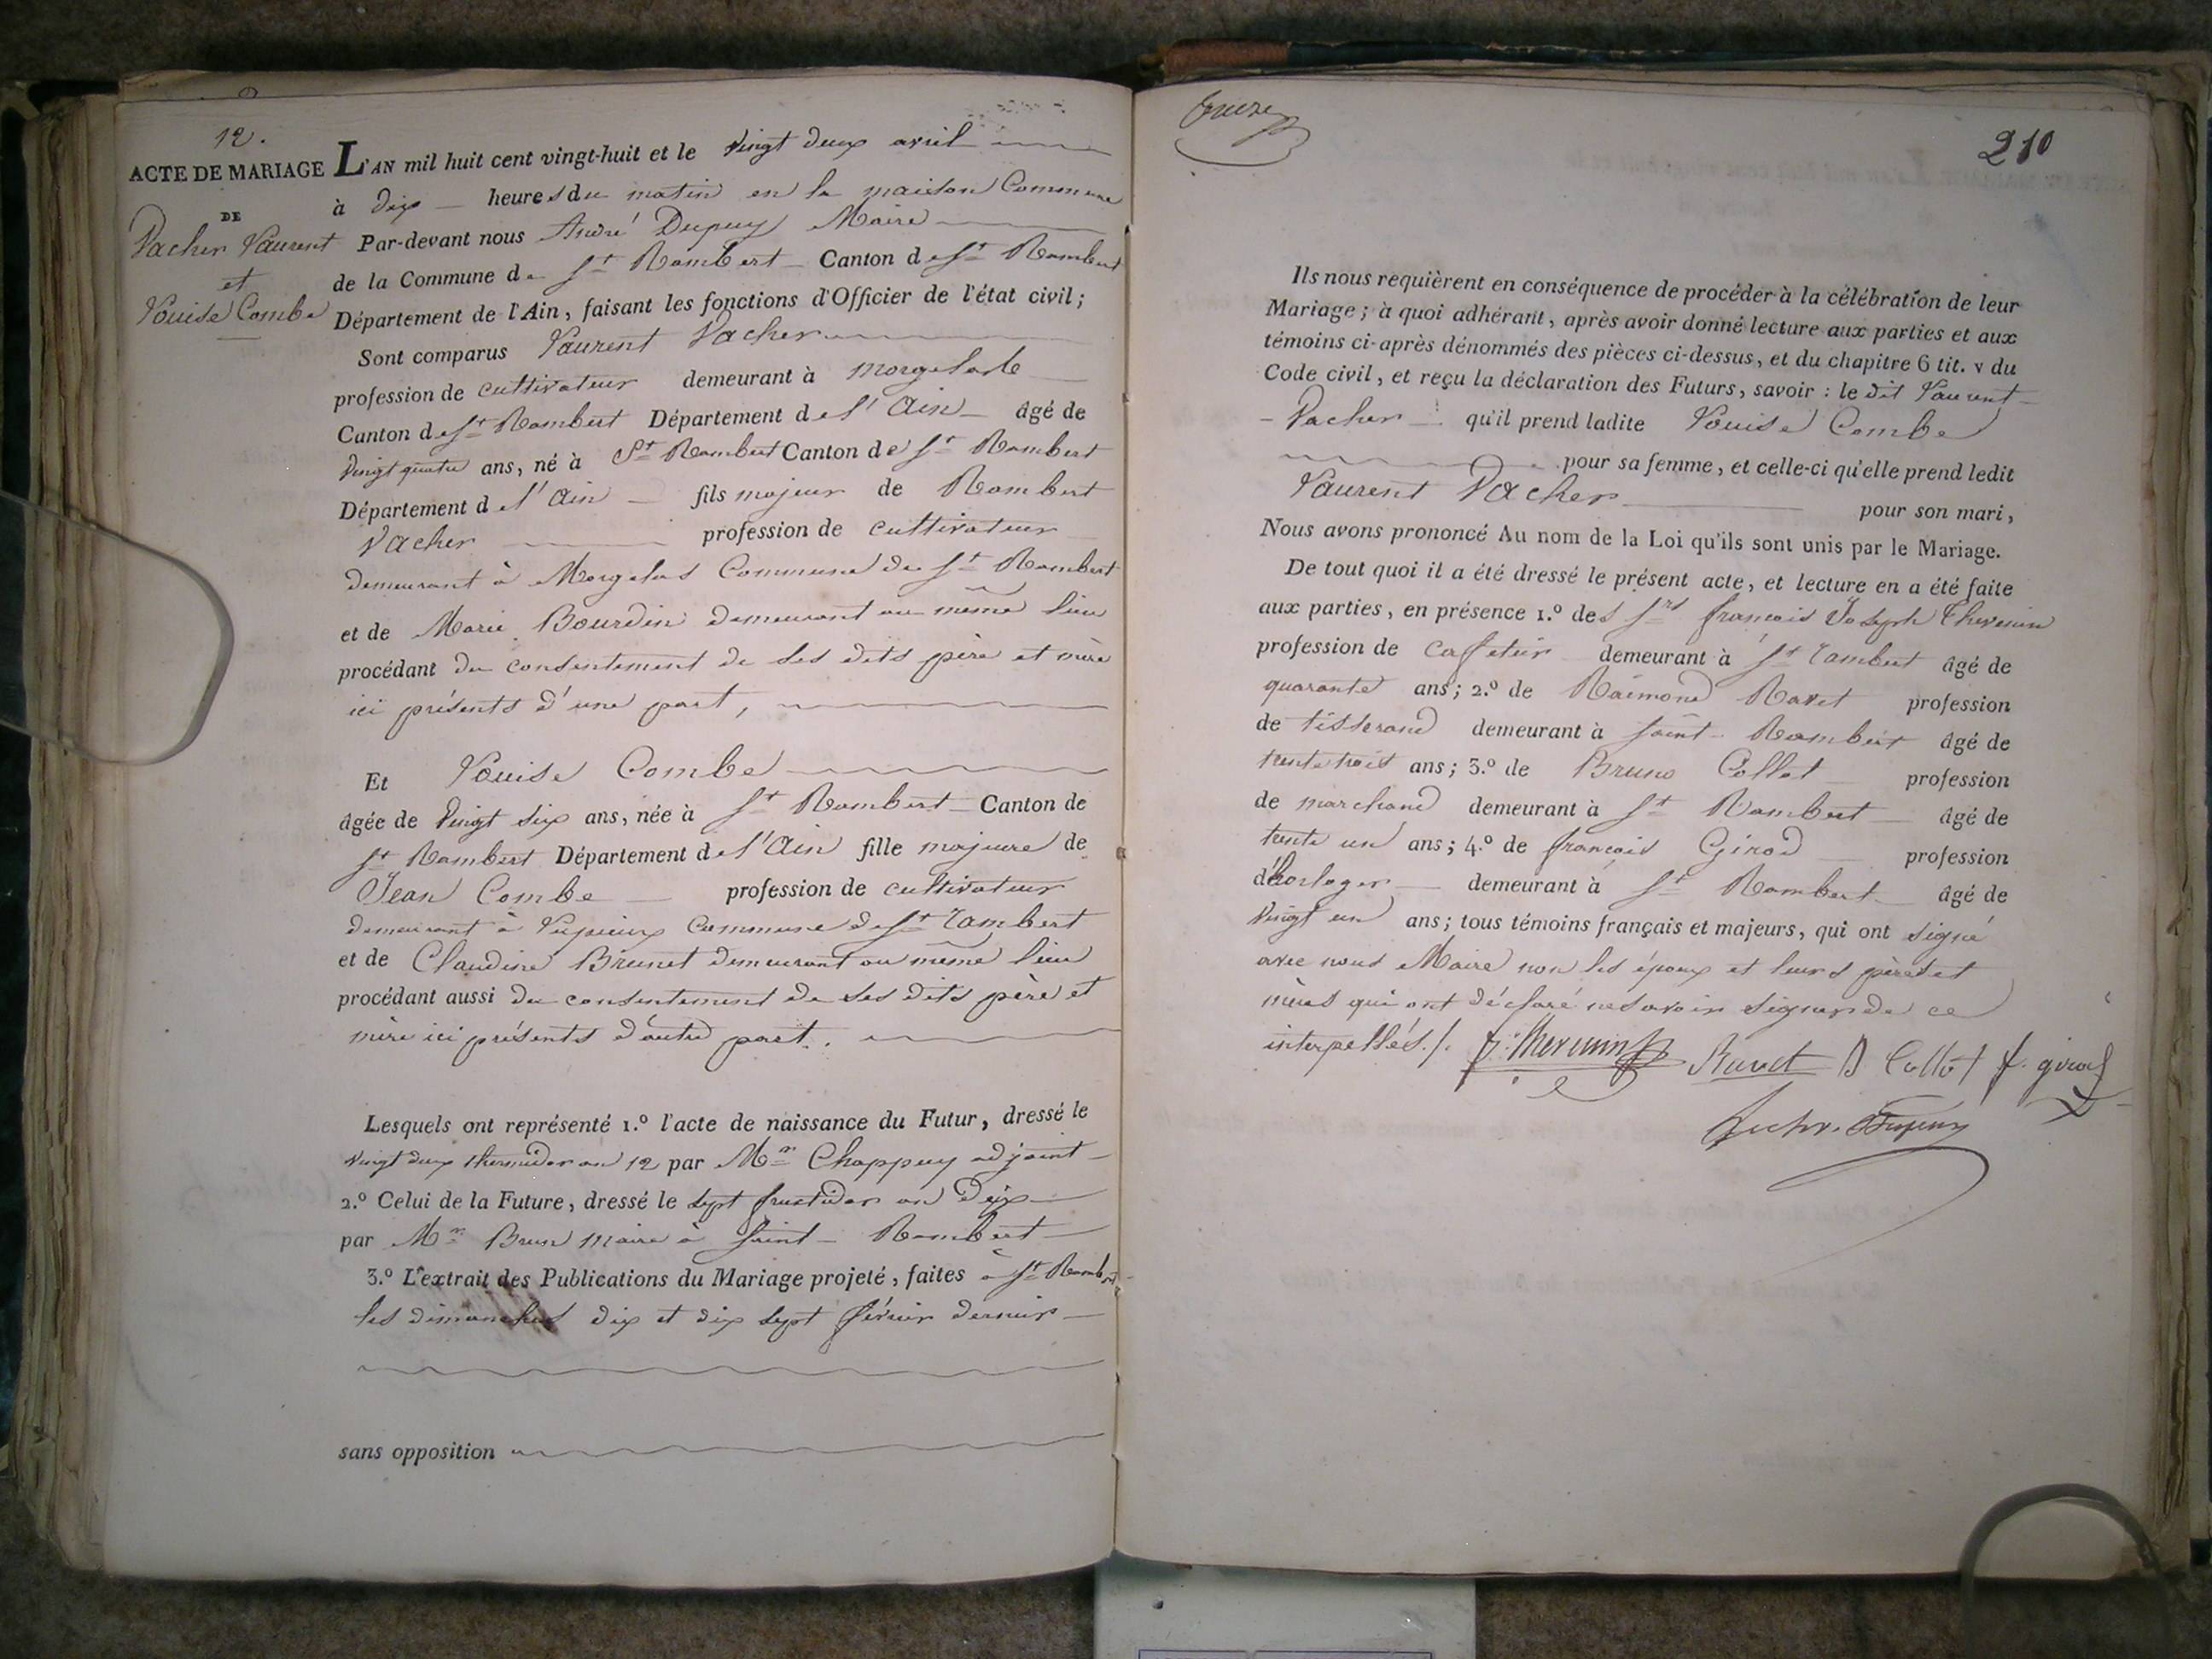 12.
ACTE DE MARIAGE
DE
Vacher Laurent
et
Louise Combe
L'AN mil huit cent vingt-huit et le vingt deux avril
à dix heures du matin en la maison Commune
Par-devant nous André Dupuy Maire
de la Commune de St Rambert Canton de St Rambert
Département de l'Ain, faisant les fonctions d'Officier de l'état civil;
Sont comparus Laurent Vacher
profession de cultivateur demeurant à
Canton de St Rambert Département de l'Ain âgé de
vingt quatre ans, né à St Rambert Canton de St Rambert
Département de l'Ain fils majeur de Rambert
Vacher profession de cultivateur
demeurant à Morgelas Commune de St Rambert
et de Marie Bourdin demeurant au même lieu
procédant du consentement de ses dits père et mère
ici présents d'une part,
Et Louise Combe
âgée de vingt six ans, née à St Rambert Canton de
St Rambert Département de l'Ain fille majeure de
Jean Combe profession de cultivateur
demeurant à Lupieux Commune de St Rambert
et de Claudine Brunet demeurant au même lieu
procédant aussi du consentement de ses dits père et
mère ici présents d'autre part.
Lesquels ont représenté 1.º l'acte de naissance du Futur, dressé le
vingt deux thermidor an 12 par Mr Chappuy adjoint
2.º Celui de la Future, dressé le sept fructidor an dix
par Mr Brun maire à Saint Rambert
3.º L'extrait des Publications du Mariage projeté, faites à St Rambert
les dimanches dix et dix sept février dernier
sans opposition
210
Ils nous requièrent en conséquence de procéder à la célébration de leur
Mariage; à quoi adhérant, après avoir donné lecture aux parties et aux
témoins ci-après dénommés des pièces ci-dessus, et du chapitre 6 tit. v du
Code civil, et reçu la déclaration des Futurs, savoir : le dit Laurent
Vacher qu'il prend ladite Louise Combe
pour sa femme, et celle-ci qu'elle prend ledit
Laurent Vacher pour son mari,
Nous avons prononcé Au nom de la Loi qu'ils sont unis par le Mariage.
De tout quoi il a été dressé le présent acte, et lecture en a été faite
aux parties, en présence 1.º des Srs françois Joseph Thevenin
profession de caffetier demeurant à St rambert âgé de
quarante ans; 2.º de Raimond Ravet profession
de tisserand demeurant à Saint Rambert âgé de
trente trois ans; 3.º de Bruno Collot profession
de marchand demeurant à St Rambert âgé de
trente un ans; 4.º de françois Girod profession
d'horloger demeurant à St Rambert âgé de
vingt un ans; tous témoins français et majeurs, qui ont signé
avec nous Maire non les époux et leurs pères et
mères qui ont déclaré ne savoir signer de ce
interpellés./. f. Thevenin Ravet B Collot f. girod
Dupuy